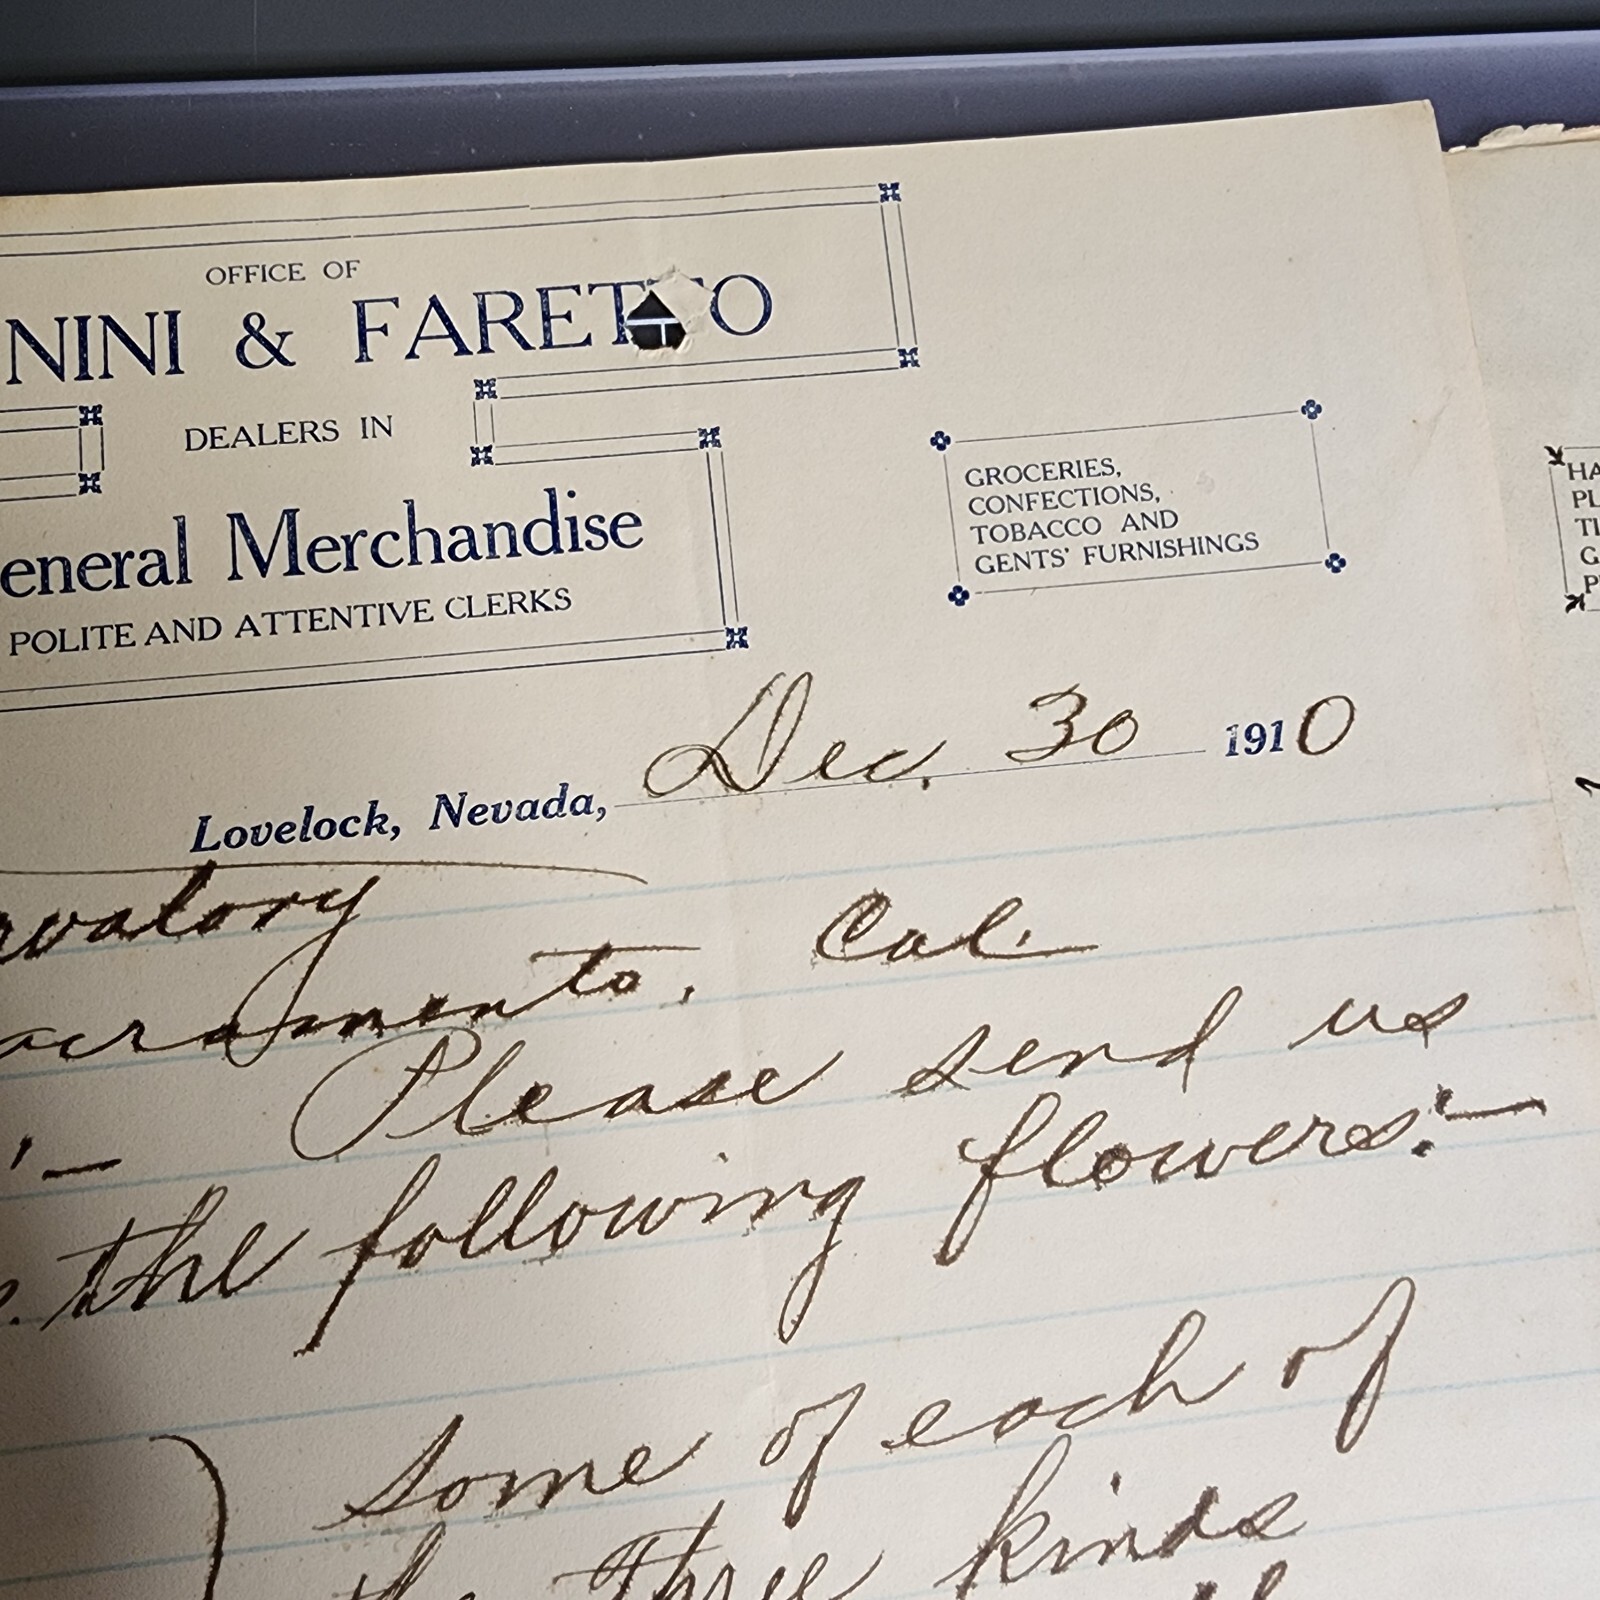 OFFICE OF
NINI & FARETTO
DEALERS IN
eneral Merchandise
POLITE AND ATTENTIVE CLERKS
GROCERIES,
CONFECTIONS,
TOBACCO AND
GENTS' FURNISHINGS
HA
PL
TI
G
P
Lovelock, Nevada, Dec. 30 1910
rvatory
acramento, Cal.
'— Please send us
the following flowers:—
some of each of
the three kinds